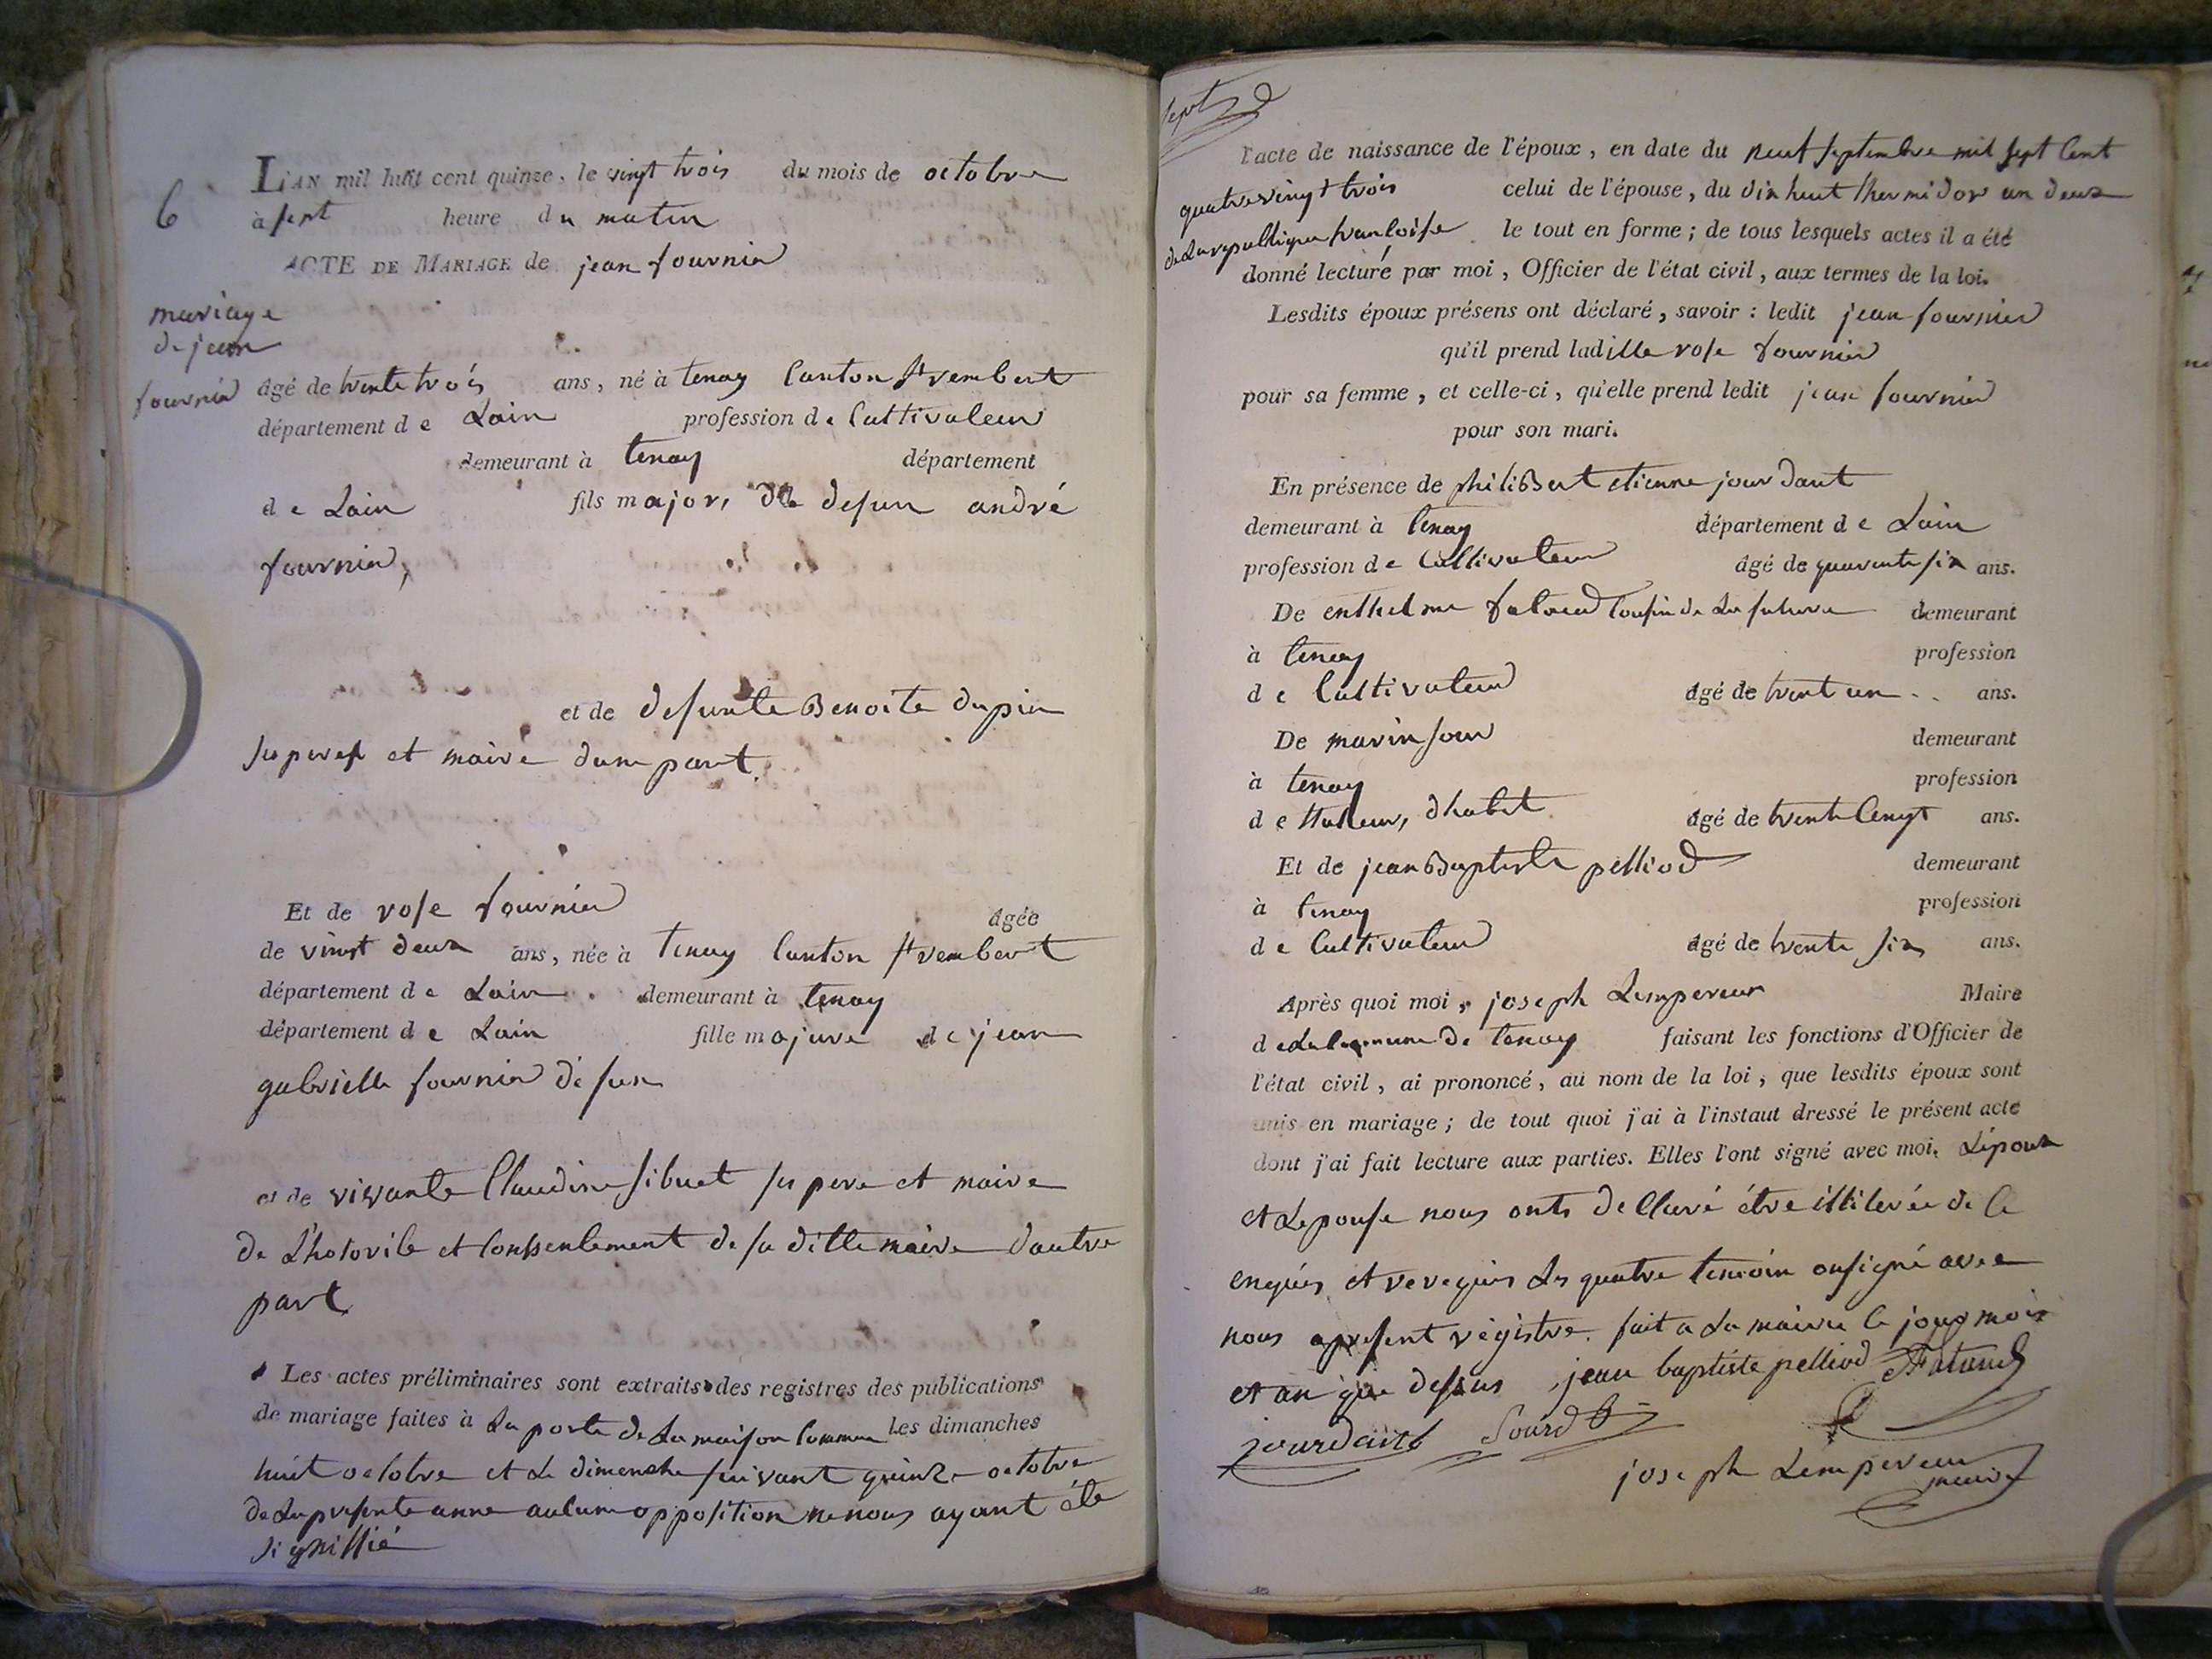 6
L'AN mil huit cent quinze, le vingt trois du mois de octobre
à sept heure du matin
ACTE DE MARIAGE de jean fournier
mariage
de jean
fournier
âgé de trente trois ans, né à tenay Canton st rembert
département de Lain profession de Cultivateur
demeurant à tenay département
de Lain fils major, de defun andré
fournier,
et de defunte Benoite dupin
ses peres et maire dune part.
Et de rose fournier âgée
de vingt deux ans, née à tenay Canton st rembert
département de Lain demeurant à tenay
département de Lain fille majure de jean
gabrielle fournier defun
et de vivante Claudine sibuet ses pere et maire
de Lhotorile et Conssentement de sa ditte maire dautre
part
Les actes préliminaires sont extraits des registres des publications
de mariage faites à La porte de La maison Commune les dimanches
huit octobre et Le dimenche suivant quinze octobre
de La presente anne aucune opposition ne nous ayant été
signiffié
sept
l'acte de naissance de l'époux, en date du neuf septembre mil sept Cent
quatrevingt trois celui de l'épouse, du dix huit thermidor an deux
de La republique francoise le tout en forme; de tous lesquels actes il a été
donné lecture par moi, Officier de l'état civil, aux termes de la loi.
Lesdits époux présens ont déclaré, savoir: ledit jean fournier
qu'il prend ladille rose fournier
pour sa femme, et celle-ci, qu'elle prend ledit jean fournier
pour son mari.
En présence de philibert etienne jourdant
demeurant à tenay département de Lain
profession de Cultivateur âgé de quarente six ans.
De enthelme falaud Cousin de La future demeurant
à tenay profession
de Cultivateur âgé de trent un ans.
De marin sour demeurant
à tenay profession
de ttalleur, dhabit âgé de trente Cenqt ans.
Et de jean Baptiste pelliod demeurant
à tenay profession
de Cultivateur âgé de trente six ans.
Après quoi moi, joseph Lempereur Maire
de La Commune de tenay faisant les fonctions d'Officier de
l'état civil, ai prononcé, au nom de la loi, que lesdits époux sont
unis en mariage; de tout quoi j'ai à l'instaut dressé le présent acte
dont j'ai fait lecture aux parties. Elles l'ont signé avec moi. Lépoux
et Lepouse nous onts dellaré étre illiterée de Ce
enquis et verequis Les quatre temoin onsigné avee
nous apresent régistre. fait a La mairie le jour mois
et an que desus jean baptiste pelliod
jourdant
joseph Lempereur
maire